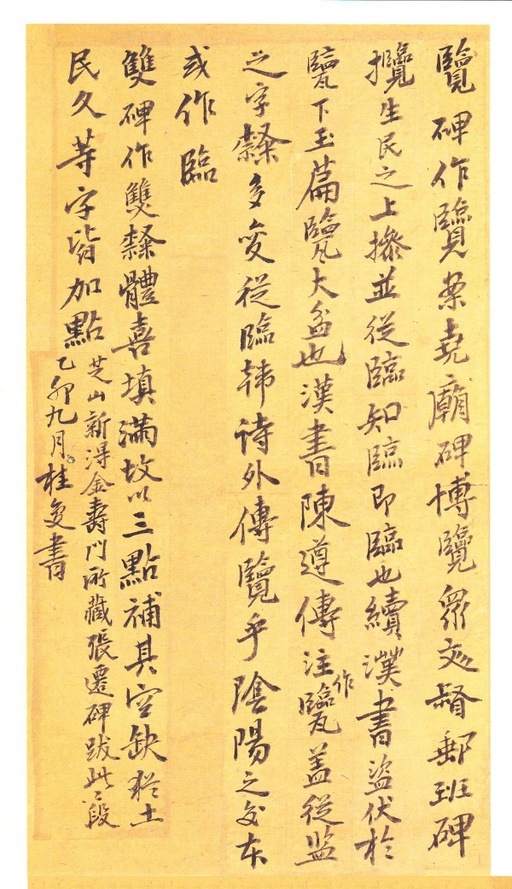 覽碑作覽案堯廟碑博覽眾文督郵班碑
攬生民之上撡並從臨知臨即臨也續漢書盜伏於
甕下玉篇甕大盆也漢書陳遵傳注作甕蓋從監
之字隸多變從臨韓詩外傳覽乎陰陽之交本
或作臨
雙碑作雙隸體喜填滿故以三點補其空缺猶土
民久等字皆加點芝山新得金壽門所藏張遷碑跋此二段
乙卯九月桂复書